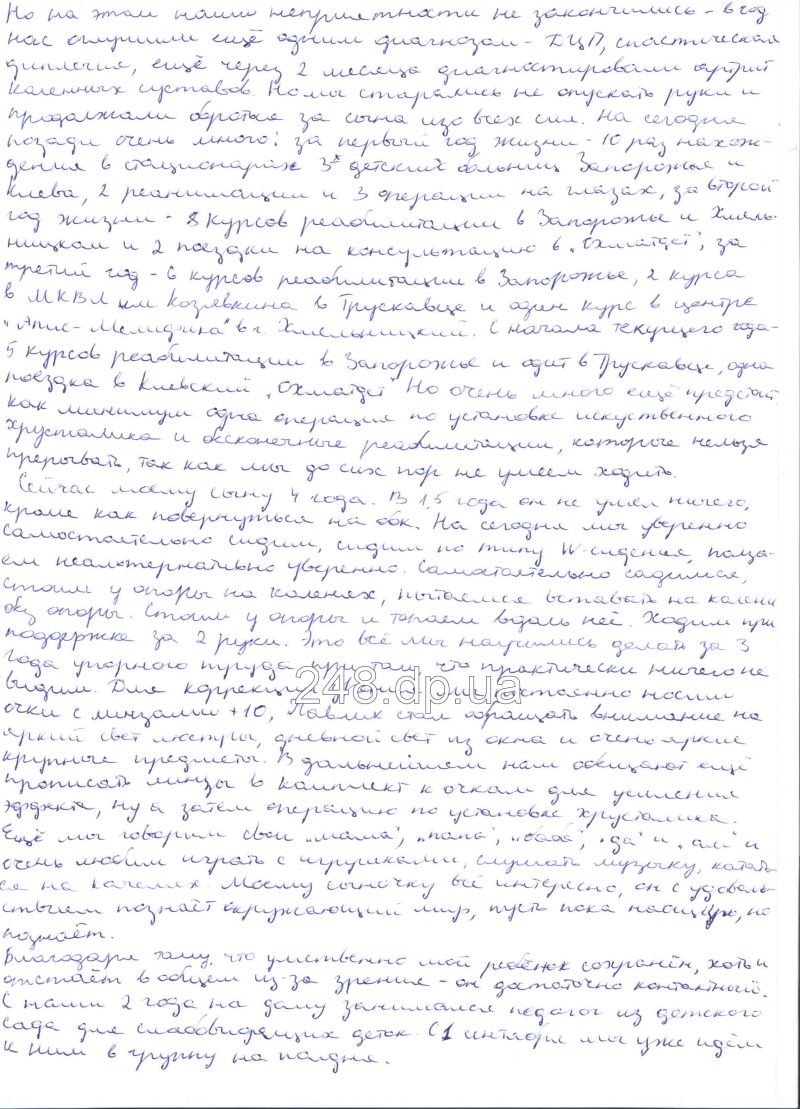 Но на этом наши неприятности не закончились - в год
нас оглушили ещё одним диагнозом - ДЦП, спастическая
диплегия, ещё через 2 месяца диагностировали артрит
коленных суставов. Но мы старались не опускать руки и
продолжали бороться за сына изо всех сил. На сегодня
позади очень много: за первый год жизни - 10 раз нахож-
дения в стационарах 3х детских больниц Запорожья и
Киева, 2 реанимации и 3 операции на глазах, за второй
год жизни - 8 курсов реабилитации в Запорожье и Хмель-
ницком и 2 поездки на консультацию в „Охматдет", за
третий год - 6 курсов реабилитации в Запорожье, 2 курса
в МКВЛ им Козявкина в Трускавце и один курс в центре
"Апис-Мелифика" в г. Хмельницкий. С начала текущего года-
5 курсов реабилитации в Запорожье и один в Трускавце, одна
поездка в Киевский „Охматдет" Но очень много ещё предстоит,
как минимум одна операция по установке искуственного
хрусталика и бесконечные реабилитации, которые нельзя
прерывать, так как мы до сих пор не умеем ходить.
Сейчас моему сыну 4 года. В 1,5 года он не умел ничего,
кроме как повернуться на бок. На сегодня мы уверенно
самостоятельно сидим, сидим по типу W-сидения, полза-
ем неальтернативно уверенно. Самостоятельно садимся,
стоим у опоры на коленях, пытаемся вставать на колени
без опоры. Стоим у опоры и топаем вдоль неё. Ходим при
поддержке за 2 руки. Это всё мы научились делать за 3
года упорного труда при том, что практически ничего не
видим. Для коррекции зрения мы постоянно носим
248.dp.ua
очки с линзами +10, Павлик стал обращать внимание на
яркий свет люстры, дневной свет из окна и очень яркие
крупные предметы. В дальнейшем нам обещают ещё
прописать линзы в комплект к очкам для усиления
эффекта, ну а затем операцию по установке хрусталика.
Ещё мы говорим свои „мама", „папа", „баба", „да" и „али" и
очень любим играть с игрушками, слушать музыку, катать-
ся на качелях. Моему сыночку всё интересно, он с удоволь-
ствием познаёт окружающий мир, пусть пока наощупь, но
познаёт.
Благодаря тому, что умственно мой ребёнок сохранён, хоть и
отстаёт в общем из-за зрения - он достаточно контактный.
С нами 2 года на дому занимался педагог из детского
сада для слабовидящих деток. С 1 сентября мы уже идём
к ним в группу на полдня.